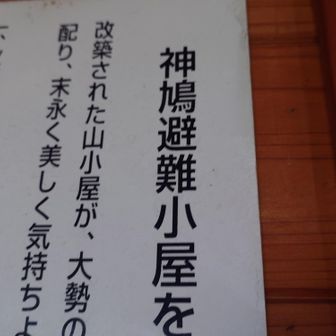 神鳩避難小屋を
改築された山小屋が、大勢の
配り、末永く美しく気持ちよ